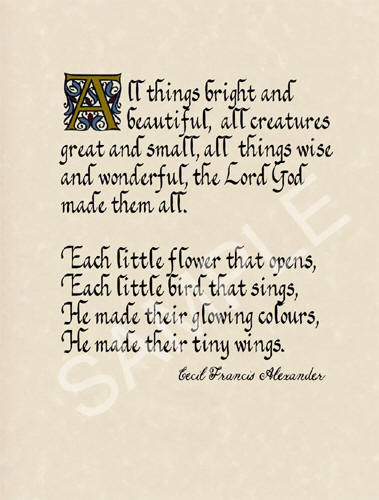 All things bright and
beautiful, all creatures
great and small, all things wise
and wonderful, the Lord God
made them all.
Each little flower that opens,
Each little bird that sings,
He made their glowing colours,
He made their tiny wings.
Cecil Francis Alexander
SAMPLE